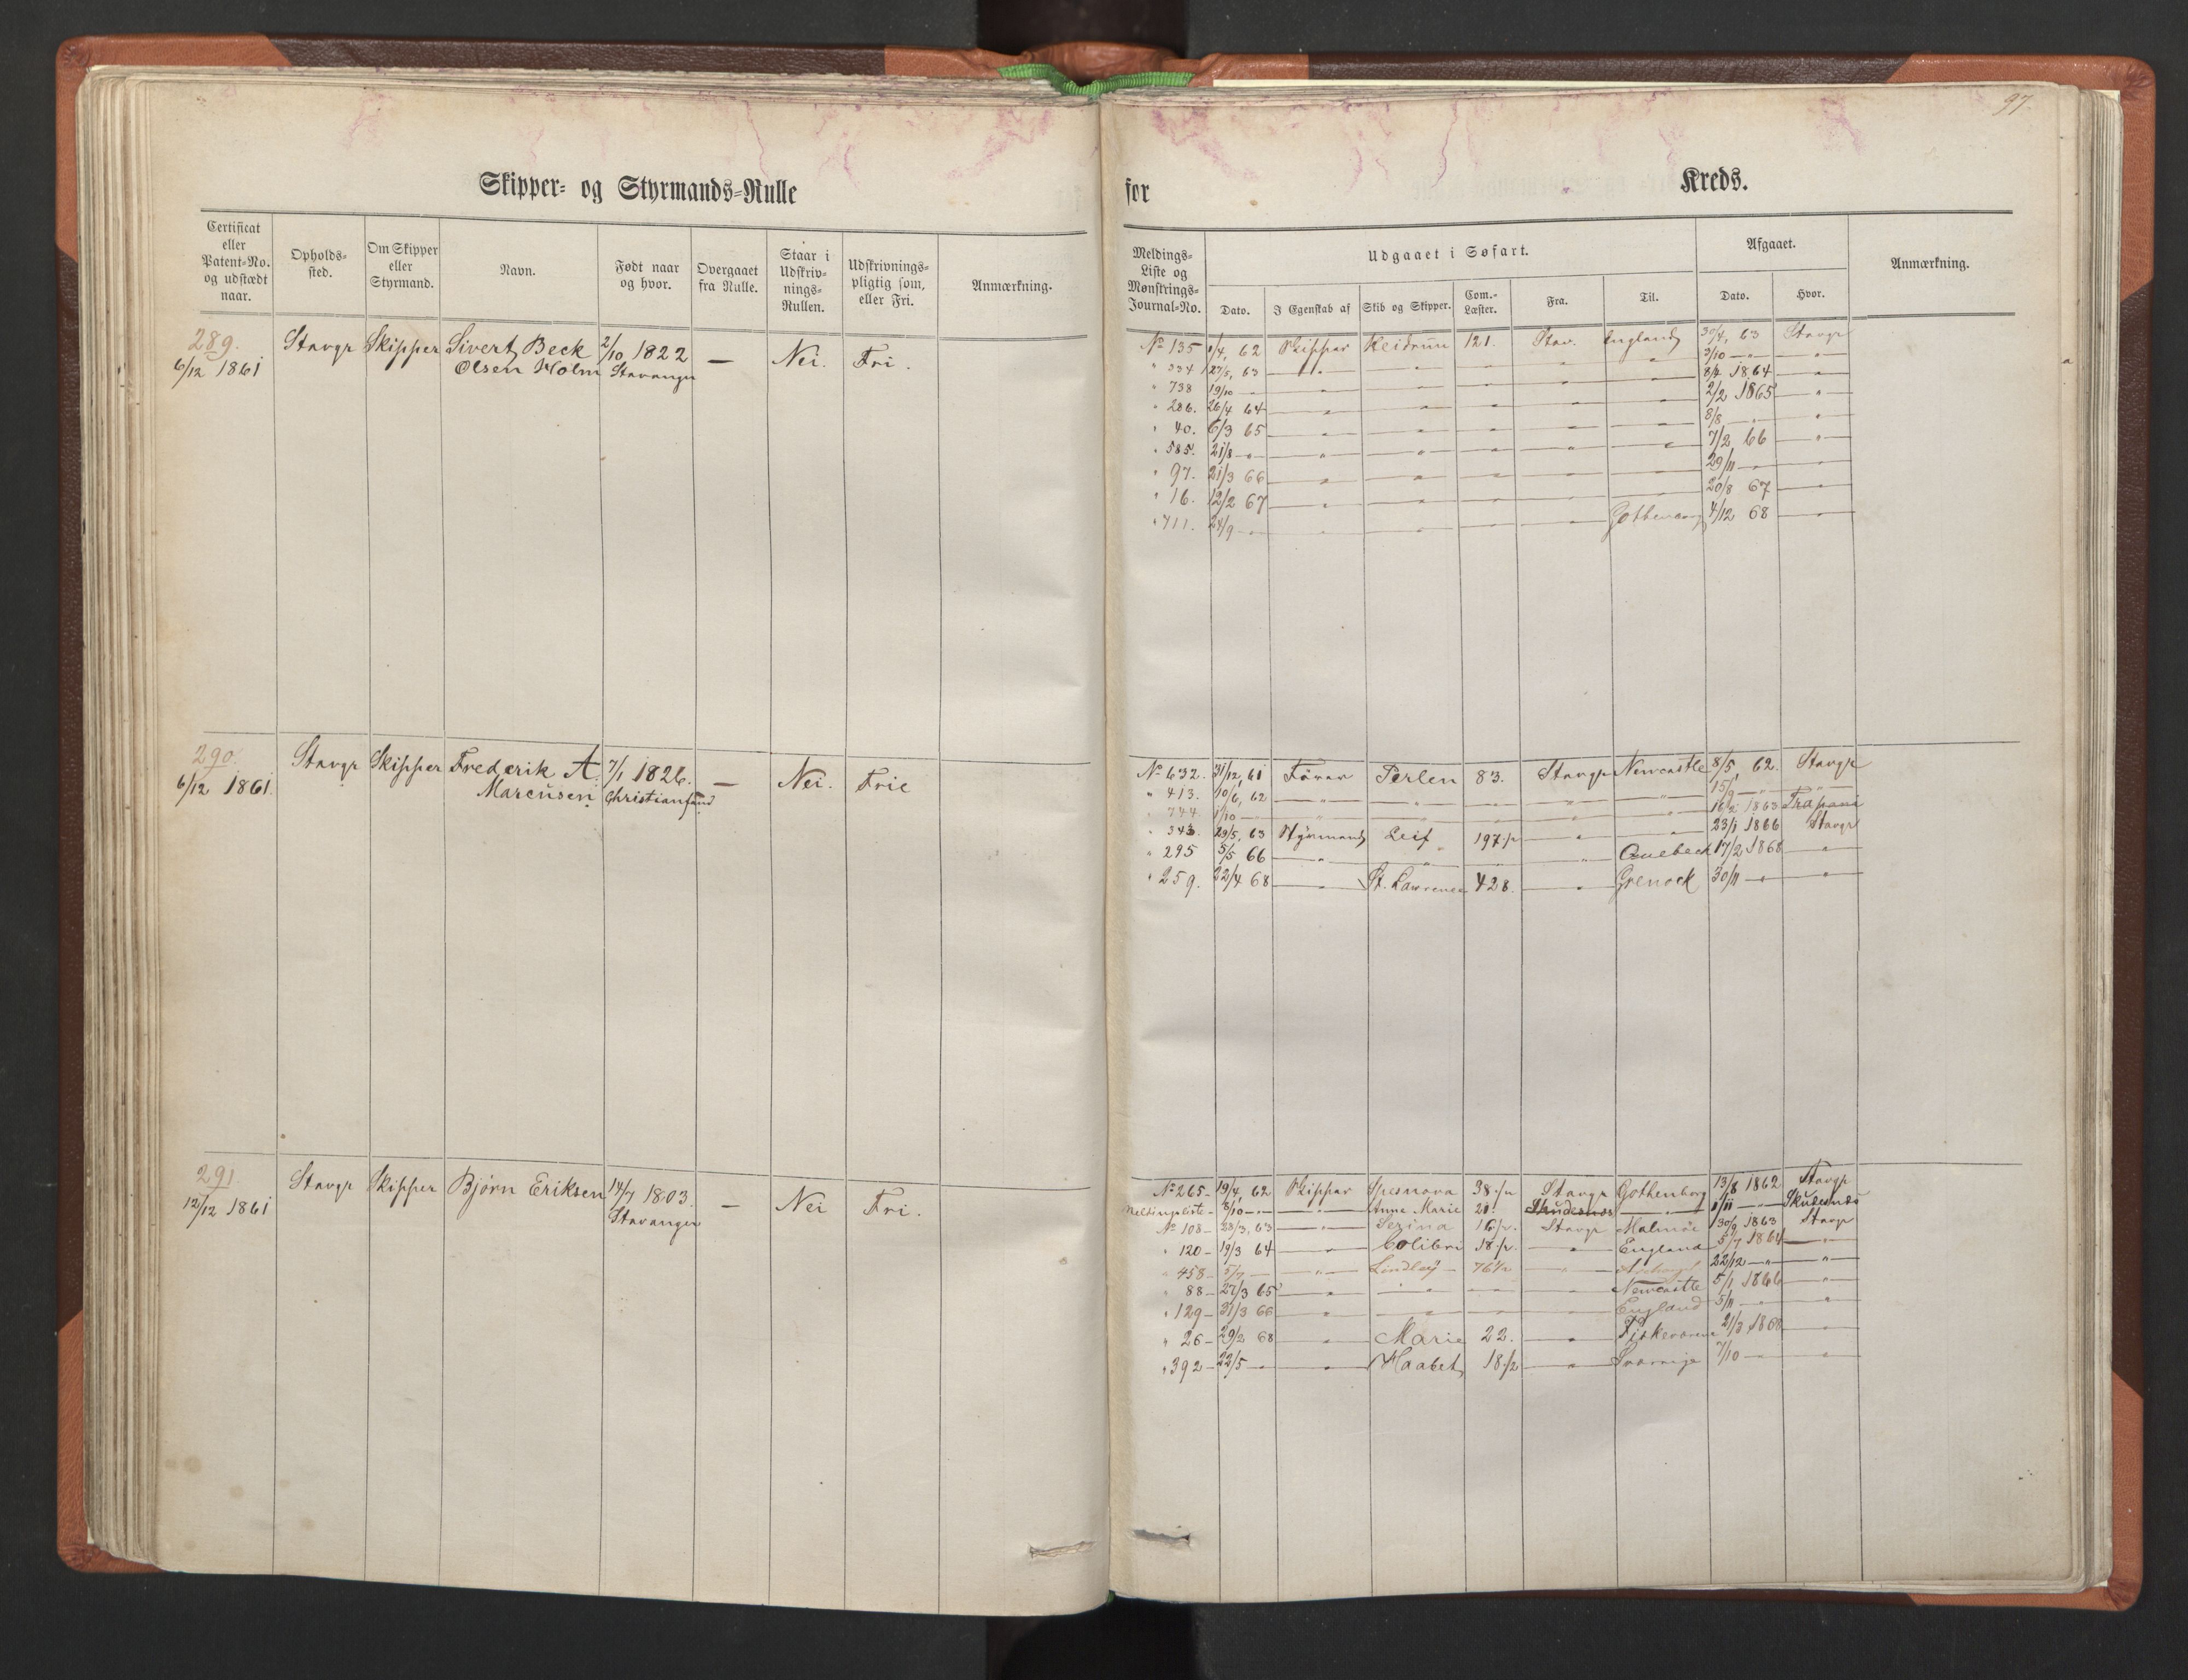 97.
Skipper- og Styrmands-Rulle
for Kreds.
Certificat eller Patent-No. og udstædt naar.
Opholds-sted.
Om Skipper eller Styrmand.
Navn.
Født naar og hvor.
Overgaaet fra Rulle.
Staar i Udskriv-nings-Rullen.
Udskrivnings-pligtig som, eller Fri.
Anmærkning.
Meldings-Liste og Mønstrings-Journal-No.
Udgaaet i Søfart.
Dato.
I Egenskab af
Skib og Skipper.
Com.-Læster.
Fra.
Til.
Afgaaet.
Dato.
Hvor.
Anmærkning.
289. Stavgr Skipper Sivert Beck 2/10 1822 — Nei. Fri.
6/12 1861 Olsen Holm Stavanger
No 135 1/4, 62 Skipper Heidrun 121. Stav. England 30/4, 63 Stavgr
" 334 27/5, 63 — " — " — " — " — 3/10 — " — "
" 738 19/10 — " — " — " — " — 8/2 1864 — "
" 286. 26/4 64 — " — " — " — " — 2/2 1865 — "
" 40. 6/3 65 — " — " — " — " — 8/8 — " — "
" 585. 21/8 — " — " — " — " — " — 7/2 66 — "
" 97. 21/3 66 — " — " — " — " — 29/11 — " — "
" 16. 12/2 67 — " — " — " — " — 20/8 67 — "
" 711. 24/9 — " — " — " — " — " — Gothenborg 4/12 68 — "
290. Stavgr Skipper Frederik A. 7/1 1826. — Nei. Frie
6/12 1861. Marcusen Christiansand
No 632. 31/12, 61 Fører Perlen 83. Stavgr Newcastle 8/5, 62. Stavgr
" 413. 10/6, 62 — " — " — " — " — " — 15/9 — " — "
" 744 1/10 — " — " — " — " — " — 16/2 1863 Trapani
" 343. 29/5, 63 Styrmand Leif 197 1/2 — " — 23/1 1866 Stavgr
" 295 5/5 66 — " — " — " — Quebeck 17/2 1868 — "
" 259. 22/4 68 — " — St. Lawrence 428. — " — Grenock 30/11 — " — "
291. Stavgr Skipper Bjørn Eriksen 14/7 1803. — Nei Fri.
12/12 1861 Stavanger
No 265 — 19/4, 62 Skipper Spesnova 38 1/2 Stavgr Gothenborg 13/8 1862 Stavgr
Meldingsliste — 8/10 — " — " — Anne Marie 21. Skudesnes — " — 1/11 — " — Skudesnes
No 108 — 23/3, 63 — " — 16 1/2. Stavgr Malmöe 30/9 1863 Stavgr
" 120 — 19/3 64 — " — Colibri 18 1/2. — " — England 5/7 1864 — "
" 458 — 5/7 — " — Lindløy — 76 1/2 — " — 22/12 — " — "
" 88 — 27/3 65 — " — " — " — " — Newcastle 5/1 1866 — "
" 129 — 31/3 66 — " — " — " — " — England 5/11 — " — "
" 26 — 29/2 68 — " — Marie 22. — " — 21/3 1868 — "
" 392 — 22/5 — " — " — Haabet 18 1/2 — " — Sverrige 7/10 — " — "